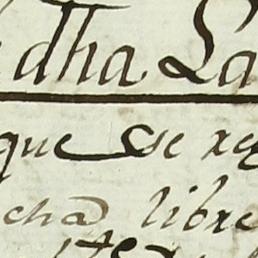 dha La
que se reg
cha libre